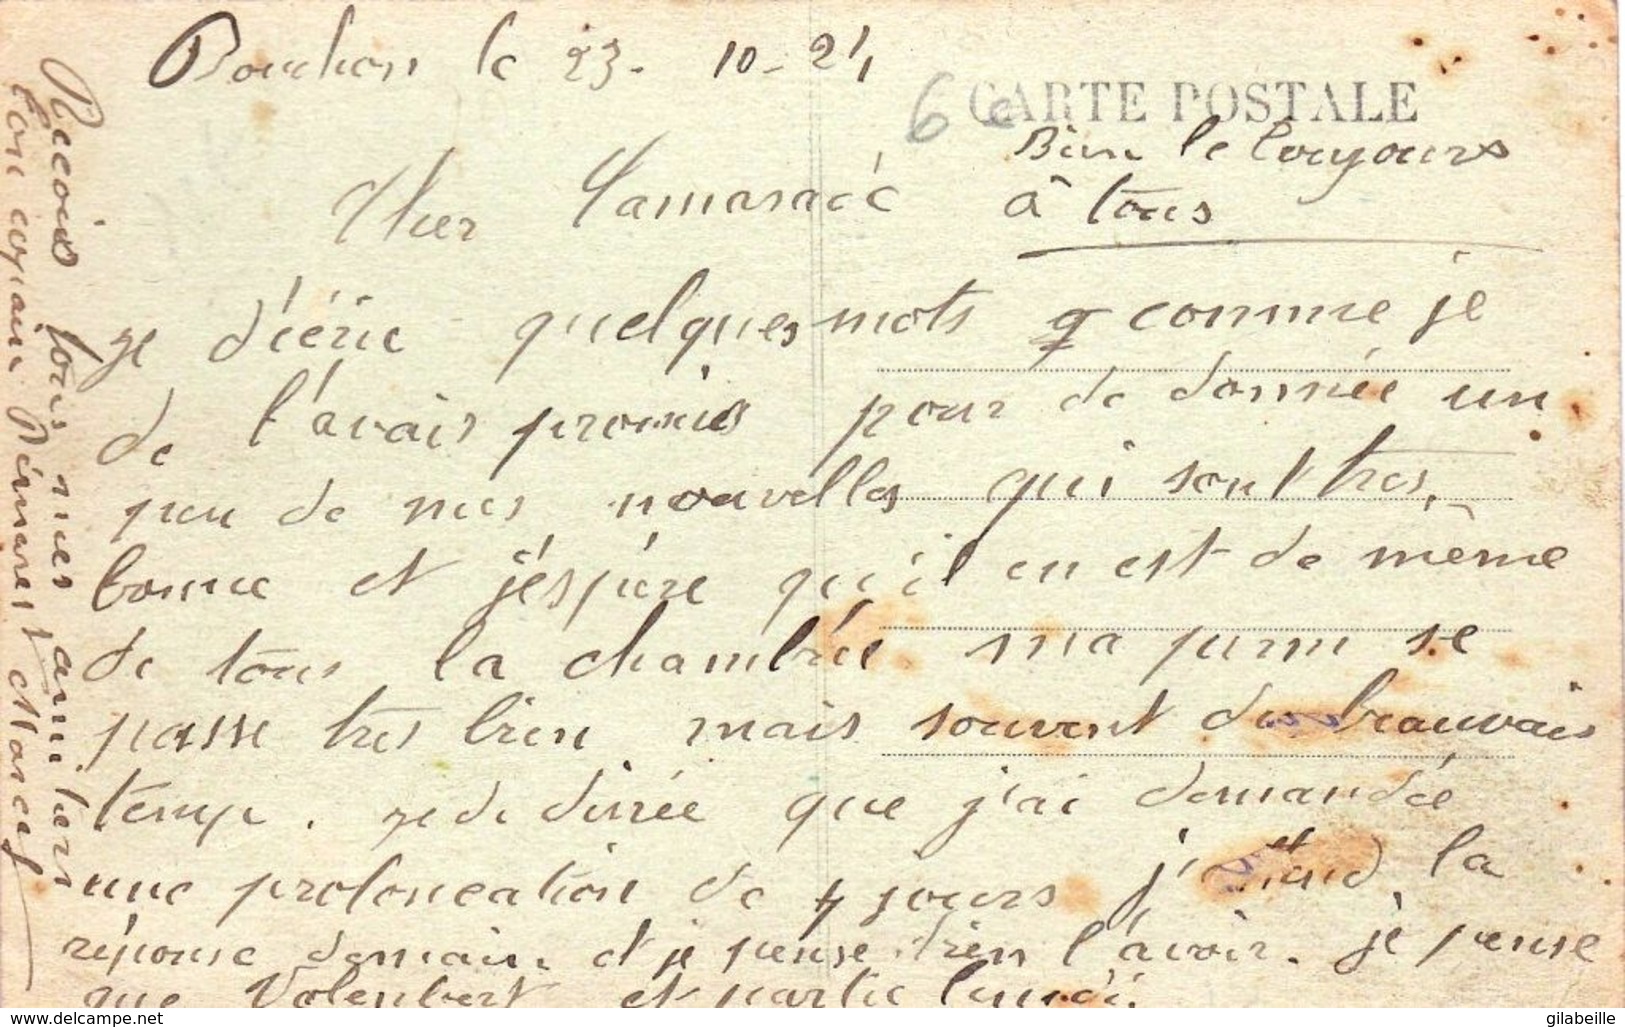 Bouchon le 23-10-24
6e CARTE POSTALE
Bien le Bonjours
à tous
Cher Camaradé
je d'écric quelques mots comme je
de l'avais promis pour de donnée un
peu de mes nouvelles qui sont tres,
bonne et j'éspère qu'il en est de même
de tous la chambrée ma perm se
passe tres bien mais souvent du beauvais
temp. je de dirée que j'ai demandée
une prolongation de 4 jours j'attend la
réponse demain et je pense bien l'avoir. je pense
que Valenbert et partie lundi.
Recois tous mes amitiers
ton copain Marcel
www.delcampe.net
gilabeille